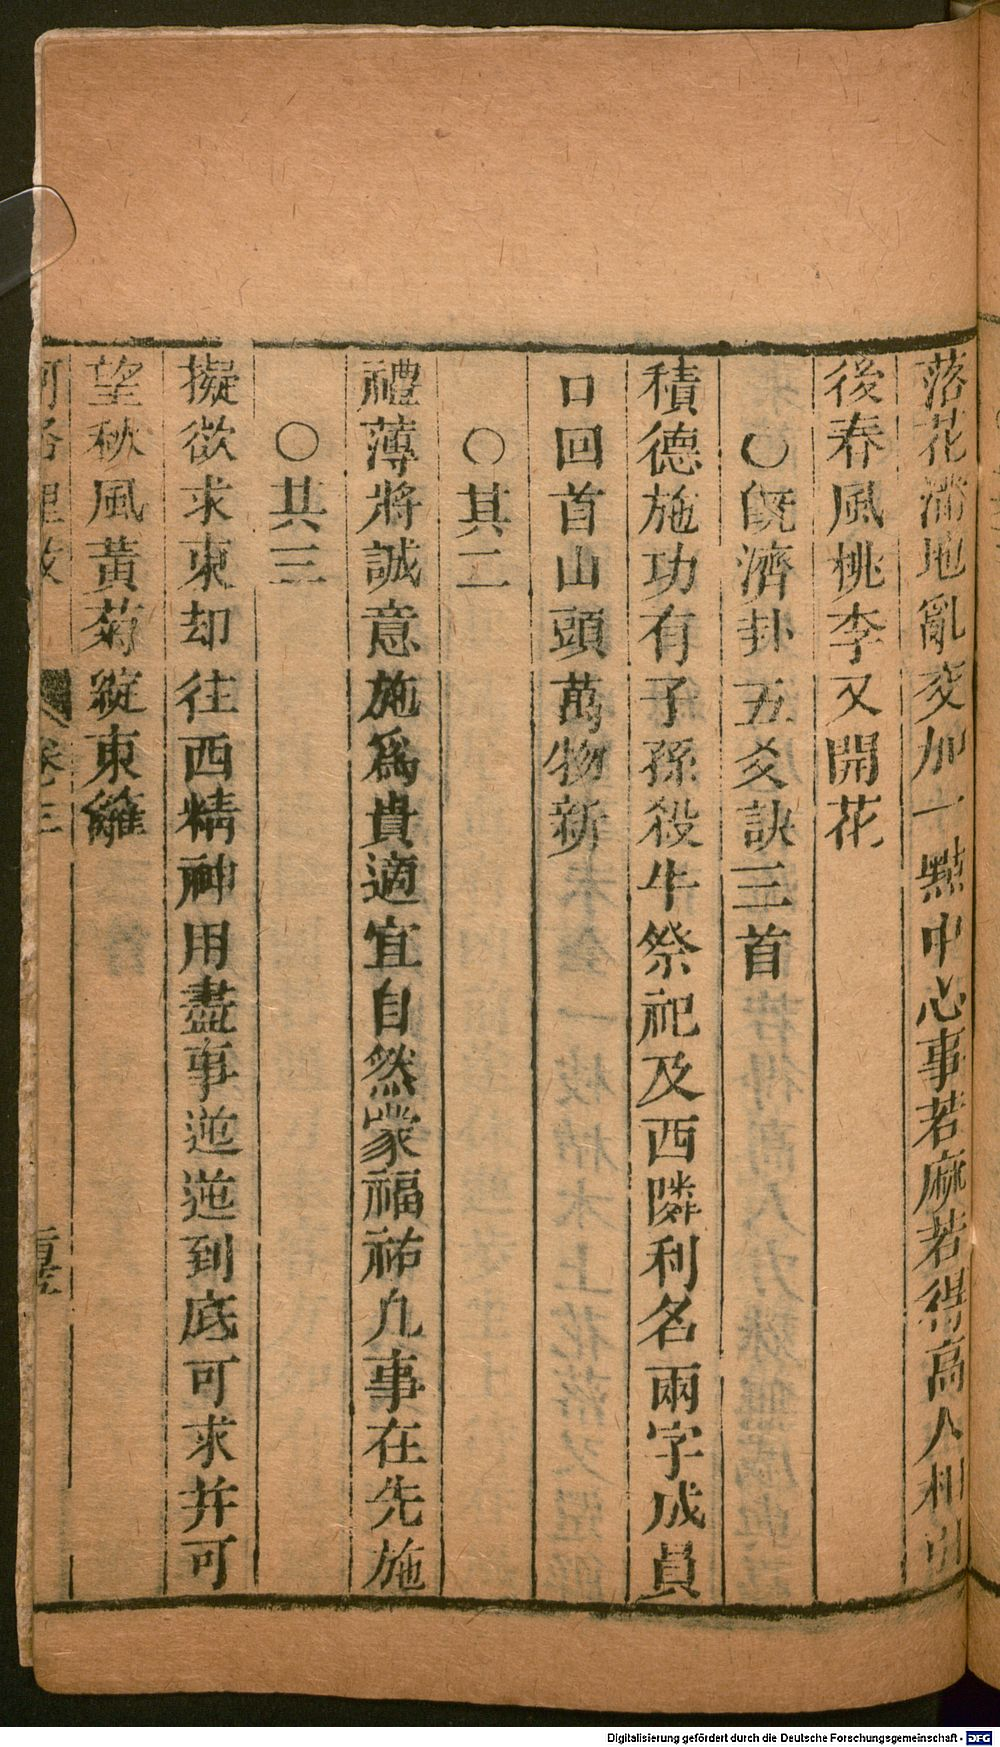 落花滿地亂交加一點中心事若麻若得高人相引
後春風桃李又開花
○旣濟卦五爻訣三首
積德施功有子孫殺牛祭祀及西隣利名兩字成員
口回首山頭萬物新
○其二
禮薄將誠意施爲貴適宜自然蒙福祐凢事在先施
○其三
擬欲求東却往西精神用盡事迤迤到底可求并可
望秋風黃菊綻東籬
河洛理數 卷三
Digitalisierung gefördert durch die Deutsche Forschungsgemeinschaft - DFG